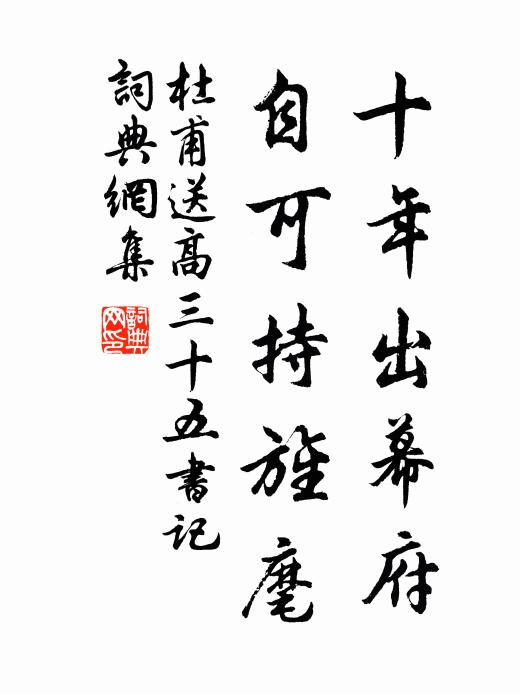 十年出幕府
自可持旌麾
杜甫送高三十五書記
詞典網集
詞典
网印